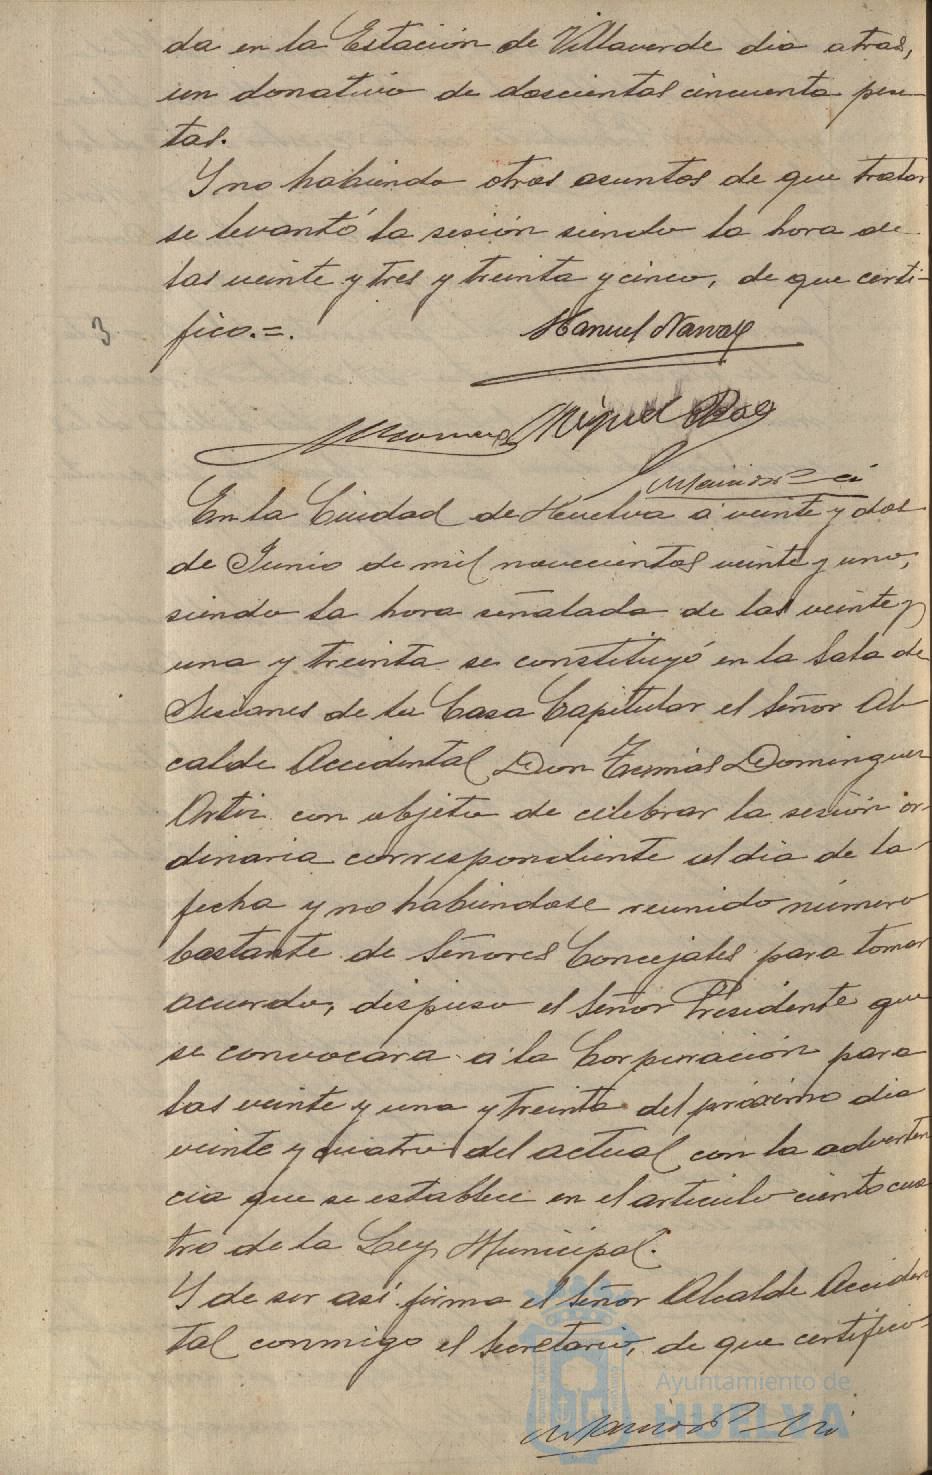 da en la Estación de Villaverde dia atras,
un donativo de doscientas cincuenta pese-
tas.
Y no habiendo otros asuntos de que tratar
se levantó la sesión siendo la hora de
las veinte y tres y treinta y cinco, de que certi-
3
fico.=.
Manuel
Miguel
En la Ciudad de Huelva a veinte y dos
de Junio de mil novecientos veinte y uno,
siendo la hora señalada de las veinte y
una y treinta se constituyó en la Sala de
Sesiones de la Casa Capitular el Señor Al-
calde Accidental Don Tomás Dominguez
Ortiz con objeto de celebrar la sesión or-
dinaria correspondiente al dia de la
fecha y no habiendose reunido número
bastante de Señores Concejales para tomar
acuerdo, dispuso el Señor Presidente que
se convocara a la Corporación para
las veinte y una y treinta del próximo dia
veinte y cuatro del actual con la adverten
cia que se establece en el articulo ciento cua
tro de la Ley Municipal.
Y de ser así firma el Señor Alcalde Acciden
tal conmigo el Secretario, de que certifico.
Ayuntamiento de
HUELVA